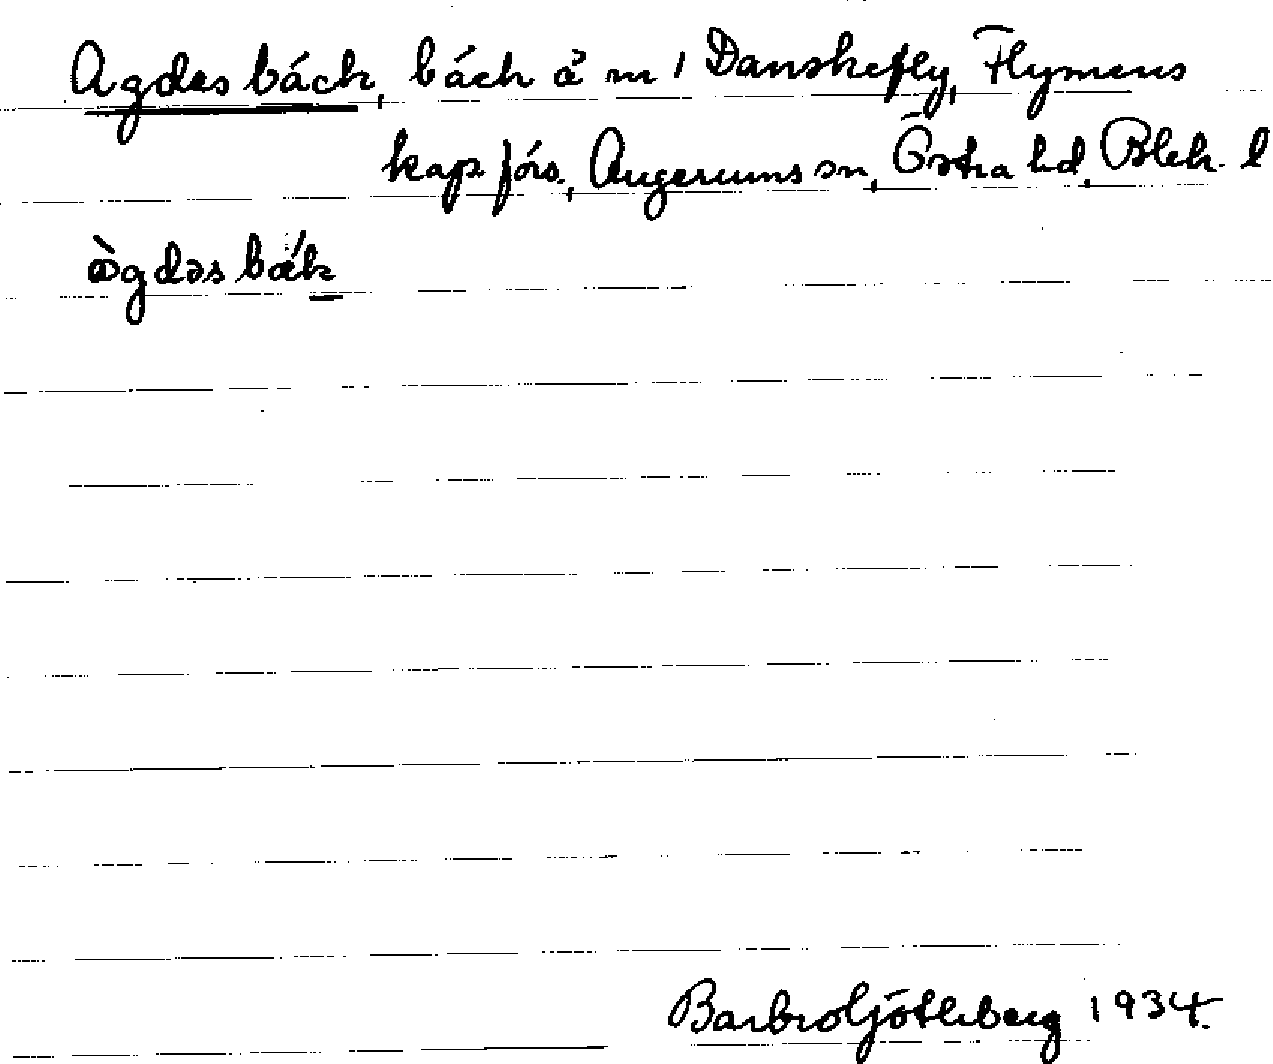 Agdas bäck, bäck å m 1 Danskefly, Flymens
kap förs., Augerums sn, Östra hd, Blek. l
ògdəs bák
Barbro Götleberg 1934.